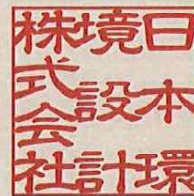 日本環
境設計
株式会社